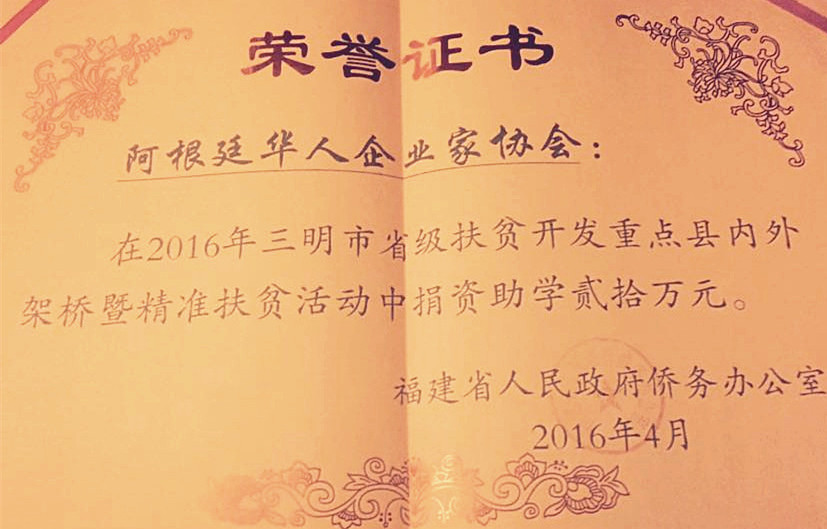 荣誉证书
阿根廷华人企业家协会：
在2016年三明市省级扶贫开发重点县内外
架桥暨精准扶贫活动中捐资助学贰拾万元。
福建省人民政府侨务办公室
2016年4月